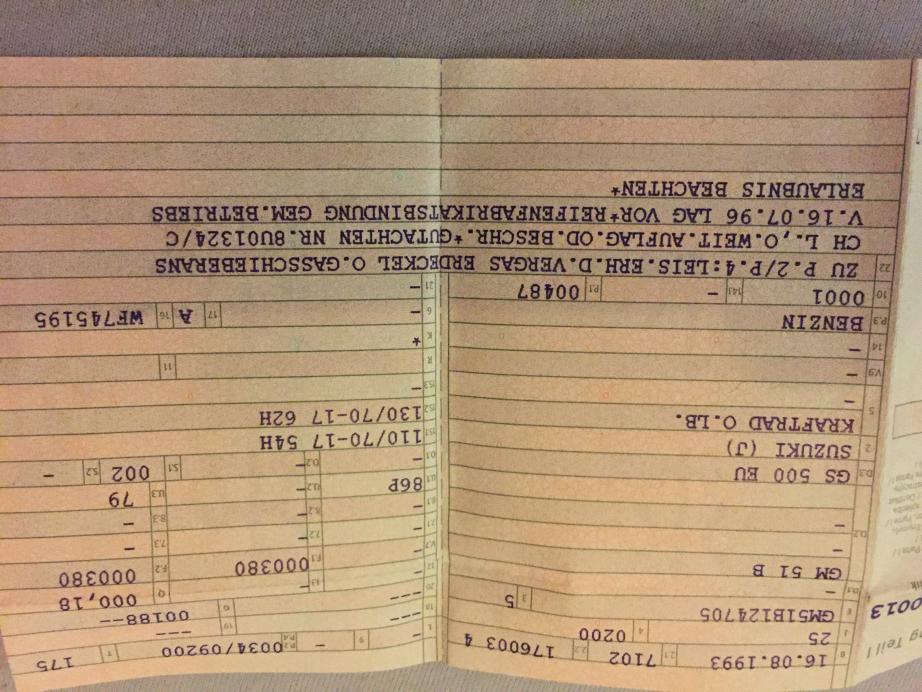 ng Teil I
0013
B 16.08.1993 2.1 7102 2.2 176003 4
J 25 4 0200
E GM51B124705 3 5
D.1 -
GM 51 B
D.2 -
-
D.3 GS 500 EU
2 SUZUKI (J)
5 KRAFTRAD O.LB.
-
V.9 -
14 -
P.3 BENZIN
10 0001 14.1 - P.1 00487
L - 9 - P.2 P.4 0034/09200 T 175
18 --- 19 ---
20 --- G 00188--
12 13 - Q 000,18
V.7 F.1 000380 F.2 000380
7.1 7.2 - 7.3 -
8.1 8.2 - 8.3 -
U.1 86P U.2 - U.3 79
O.1 - O.2 - S.1 002 S.2 -
15.1 110/70-17 54H
15.2 130/70-17 62H
15.3 -
R 11
K *
6 - 17 A 16 WF745195
21 -
22 ZU P.2/P.4:LEIS.ERH.D.VERGAS ERDECKEL O.GASSCHIEBERANS
CH L.,O.WEIT.AUFLAG.OD.BESCHR.*GUTACHTEN NR.8U01324/C
V.16.07.96 LAG VOR*REIFENFABRIKATSBINDUNG GEM.BETRIEBS
ERLAUBNIS BEACHTEN*